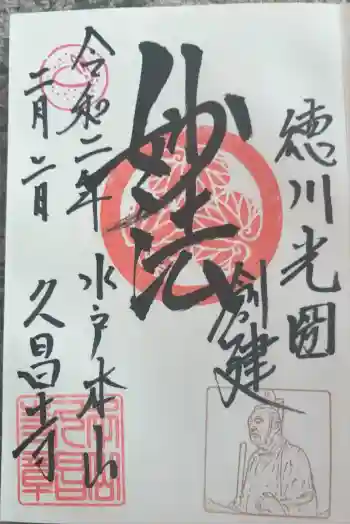 徳川光圀
創建
妙法
水戸本山
久昌寺
令和二年
二月二日